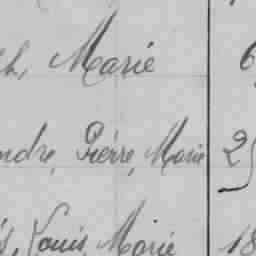 h, Marie 6
ndre, Pierre, Marie 25
s, Louis, Marie 18